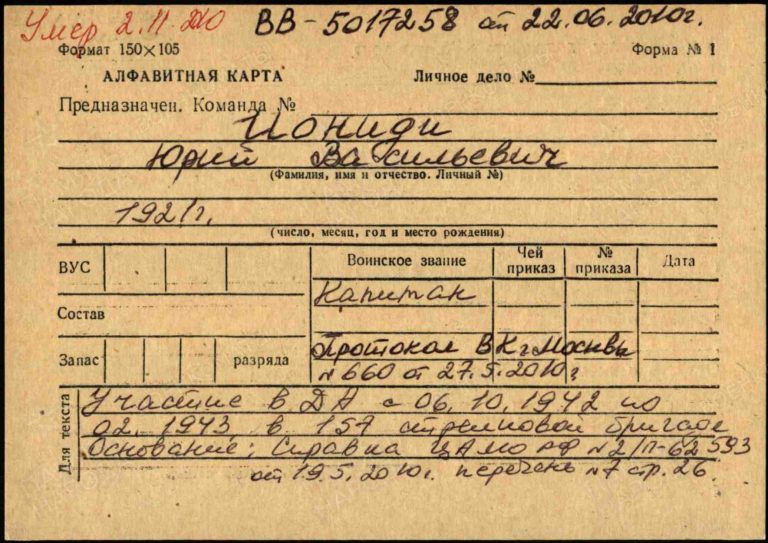 Умер 2.11.2010 ВВ-5017258 от 22.06.2010г.
Формат 150×105 Форма № 1
АЛФАВИТНАЯ КАРТА Личное дело №
Предназначен. Команда №
Иониди
Юрий Васильевич
(Фамилия, имя и отчество. Личный №)
1921г.
(число, месяц, год и место рождения)
ВУС Воинское звание Чей приказ № приказа Дата
Капитан
Состав
Протокол ВК г. Москвы
Запас разряда №660 от 27.5.2010г
Для текста
Участие в ДА с 06.10.1942 по
02.1943 в 157 стрелковой бригаде
Основание: Справка ЦАМО РФ №2/П-62593
от 19.5.2010г. перечень №7 стр.26.